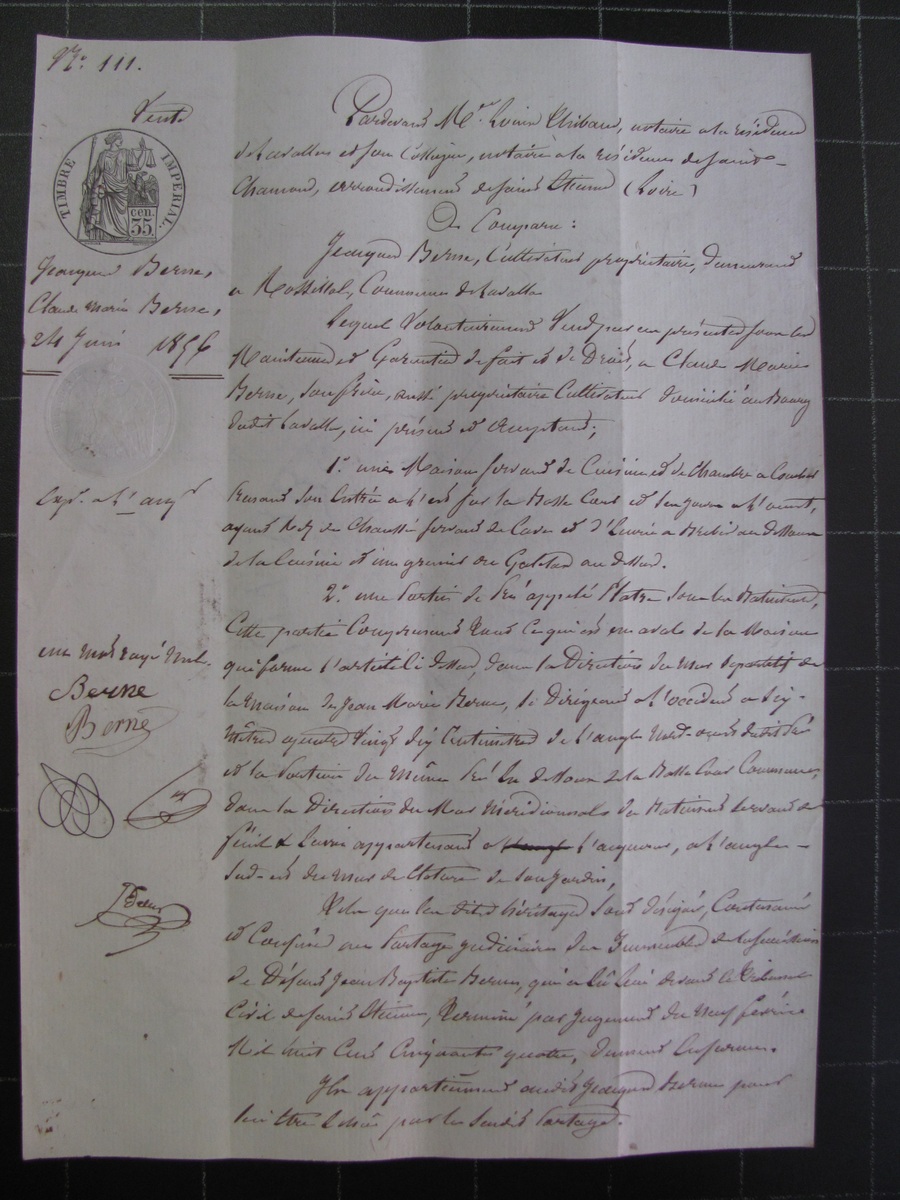 No. 111.
Vente
TIMBRE IMPÉRIAL.
35 cen.
Jacques Berne,
Claude Marie Berne,
24 Juin 1856
Exp. à l'acq.
un mot rayé nul.
Berne
Berne
Pardevant Me. Louis Thibaud, notaire à la résidence
de Lavalla et son Collègue, notaire à la résidence de Saint-
Chamond, arrondissement de Saint Etienne (Loire)
A Comparu:
Jacques Berne, Cultivateur propriétaire, demeurant
à Rossillol, Commune de Lavalla
Lequel Volontairement Vend par ces présentes sous les
Maintenue et Garantie de fait et de Droit, à Claude Marie
Berne, son frère, aussi propriétaire Cultivateur domicilié au Bourg
dudit Lavalla, ici présent et acceptant;
1.° une Maison servant de Cuisine et de Chambre à Coucher
prenant son Entrée à l'est sur la Basse Cour et ses jours à l'ouest,
ayant rez de Chaussée servant de Cave et d'Ecurie à Brebis au dessous
de la Cuisine et une grenier ou Galetas au dessus.
2.° une Partie de Pré appelé Platre sous les Batiments,
Cette partie Comprenant tout ce qui est en aval de la Maison
qui forme l'article Ci dessus, dans la Direction du mur séparatif de
la Maison de Jean Marie Berne, se Dirigeant à l'occident à dix
Mètres quatre vingt dix Centimètres de l'angle Nord-ouest dudit Pré
et la Portion du Même Pré en dessous de la Basse Cour Commune,
dans la Direction du Mur Méridional du Batiment servant de
fenil & Ecurie appartenant à l'acquéreur, à l'angle
Sud-est du mur de Cloture de son Jardin,
Telsque les dits héritages sont désignés, Contenus
et Confinés au Partage judiciaire des Immeubles de la succession
de Défunt Jean Baptiste Berne, qui a eu lieu devant le Tribunal
Civil de Saint Etienne, terminé par Jugement du neuf février
Mil huit Cent Cinquante quatre, dument en forme.
Ils appartiennent audit Jacques Berne pour
lui être échus par le susdit Partage.